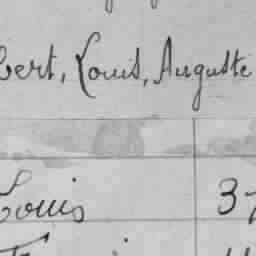 bert, Louis, Auguste
Louis 37